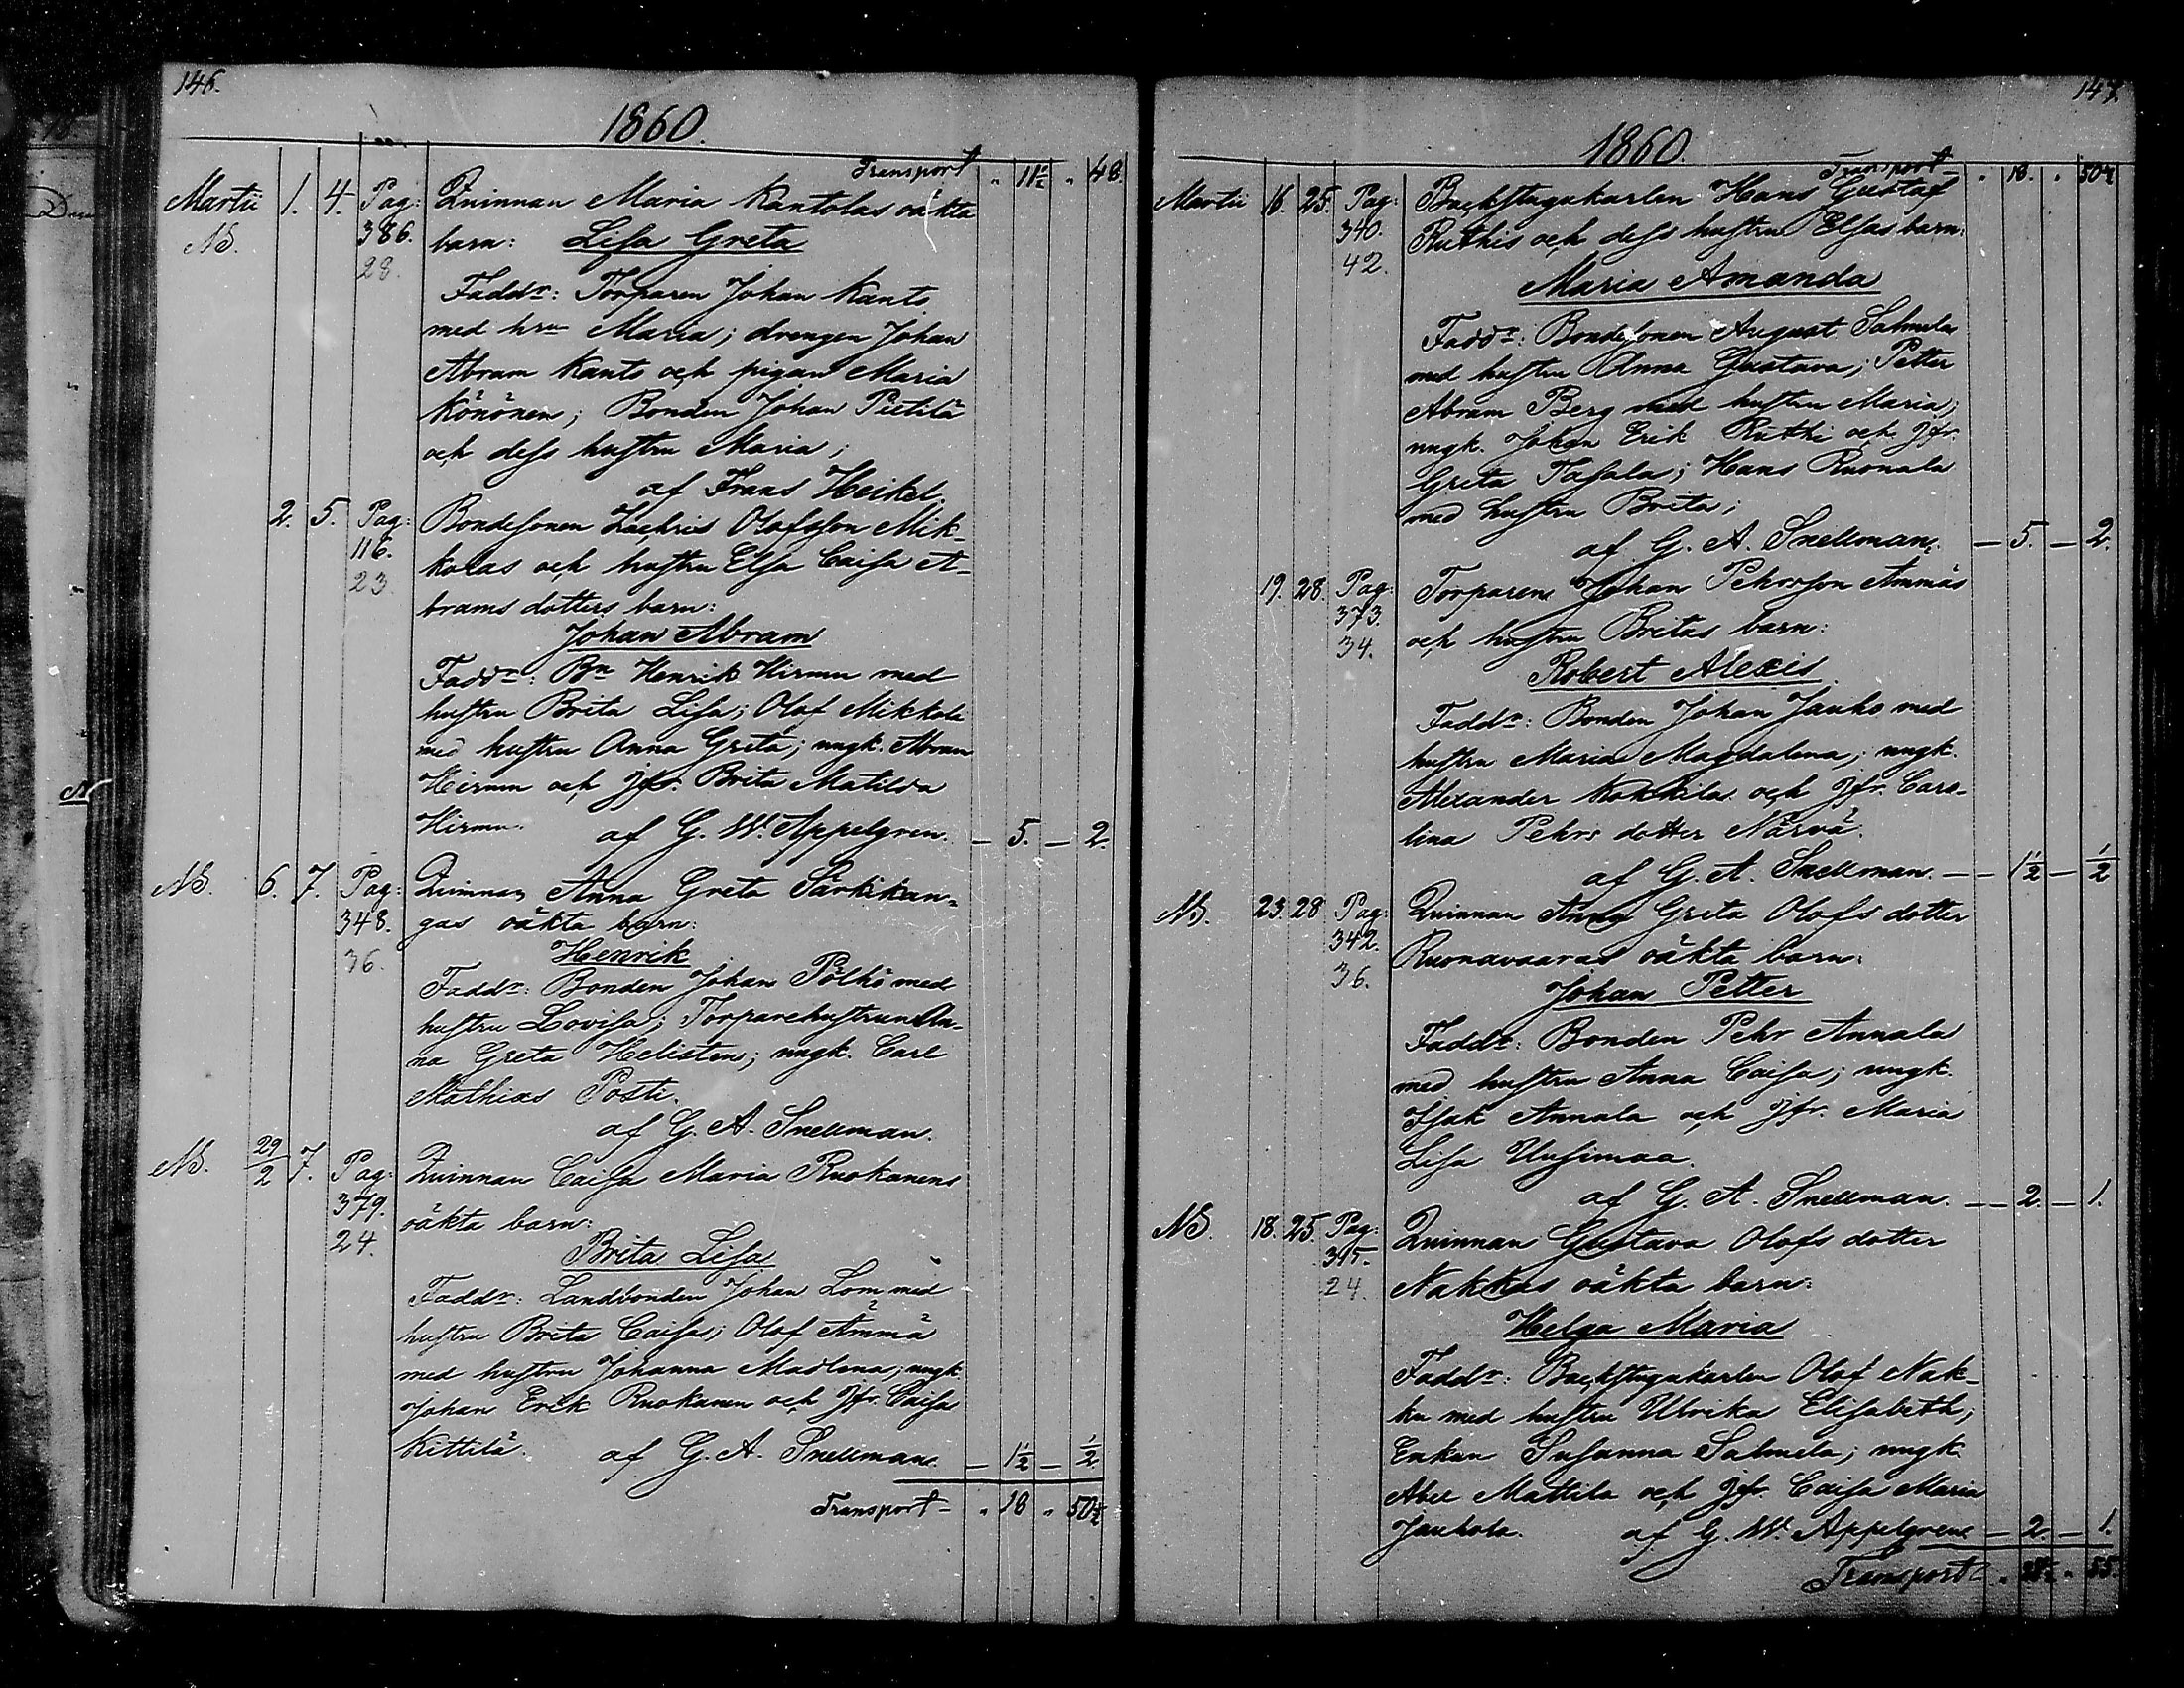 146.
1860.
Transport " 11½ " 48.
Martii 1. 4. Pag: Qvinnan Maria Kantolas oäkta
NB. 386. barn: Lisa Greta
28.
Faddr: Torparen Johan Kanto
med hru Maria; drengen Johan
Abram Kanto och pigan Maria
Könönen; Bonden Johan Pietilä
och dess hustru Maria;
af Frans Heikel.
2. 5. Pag: Bondesonen Zachris Olofsson Mik-
116. kolas och hustru Elsa Caisa A-
23. brams dotters barn:
Johan Abram
Faddr: Bn Henrik Hirmu med
hustru Brita Lisa; Olof Mikkola
med hustru Anna Greta; ungk. Abram
Hirmu och Jfr. Brita Matilda
Hirmu. af G. W. Appelgren. — 5. — 2.
NB. 6. 7. Pag: Qvinnan Anna Greta Särkikan-
348. gas oäkta barn:
36. Henrik
Faddr: Bonden Johan Pölhö med
hustru Lovisa; Torparehustrun An-
na Greta Helisten; ungk. Carl
Mathias Posti.
af G. A. Snellman.
NB. 29/2 7. Pag: Qvinnan Caisa Maria Ruokanens
379. oäkta barn:
24. Brita Lisa
Faddr: Landbonden Johan Lom med
hustru Brita Caisa; Olof Ämmä
med hustru Johanna Madlena; ungk
Johan Erik Ruokanen och Jfr. Caisa
Kittilä. af G. A. Snellman. — 1½ — ½
Transport — " 18 " 50½
147.
1860.
Transport — " 18. " 50½
Martii 16. 25. Pag: Backstugukarlen Hans Gustaf
340. Ruthis och dess hustru Elsas barn:
42. Maria Amanda
Faddr: Bondesonen August Salmela
med hustru Anna Gustava; Petter
Abram Berg med hustru Maria;
ungk. Johan Erik Ruthi och Jfr.
Greta Tasala; Hans Ruonala
med hustru Brita;
af G. A. Snellman. — 5. — 2.
19. 28. Pag: Torparen Johan Pehrsson Ämmäs
373. och hustru Britas barn:
34. Robert Alexis
Faddr: Bonden Johan Jauho med
hustru Maria Magdalena; ungk.
Alexander Kokkila och Jfr. Caro-
lina Pehrs dotter Närvä.
af G. A. Snellman. — — 1½ — ½
NB. 23. 28 Pag: Qvinnan Anna Greta Olofs dotter
342. Ruonavaaras oäkta barn:
36. Johan Petter
Faddr: Bonden Pehr Annala
med hustru Anna Caisa; ungk.
Isak Annala och Jfr. Maria
Lisa Uusimaa.
af G. A. Snellman. — — 2. — 1.
NB. 18. 25. Pag: Qvinnan Gustava Olofs dotter
395. Nakkas oäkta barn:
24.
Helga Maria
Faddr: Backstugukarlen Olof Nak-
ku med hustru Ulrika Elisabeth;
Enkan Susanna Salmela; ungk.
Abel Mattila och Jfr. Caisa Maria
Jauhola. af G. W. Appelgren — 2. — 1.
Transport — " 28½ " 55.